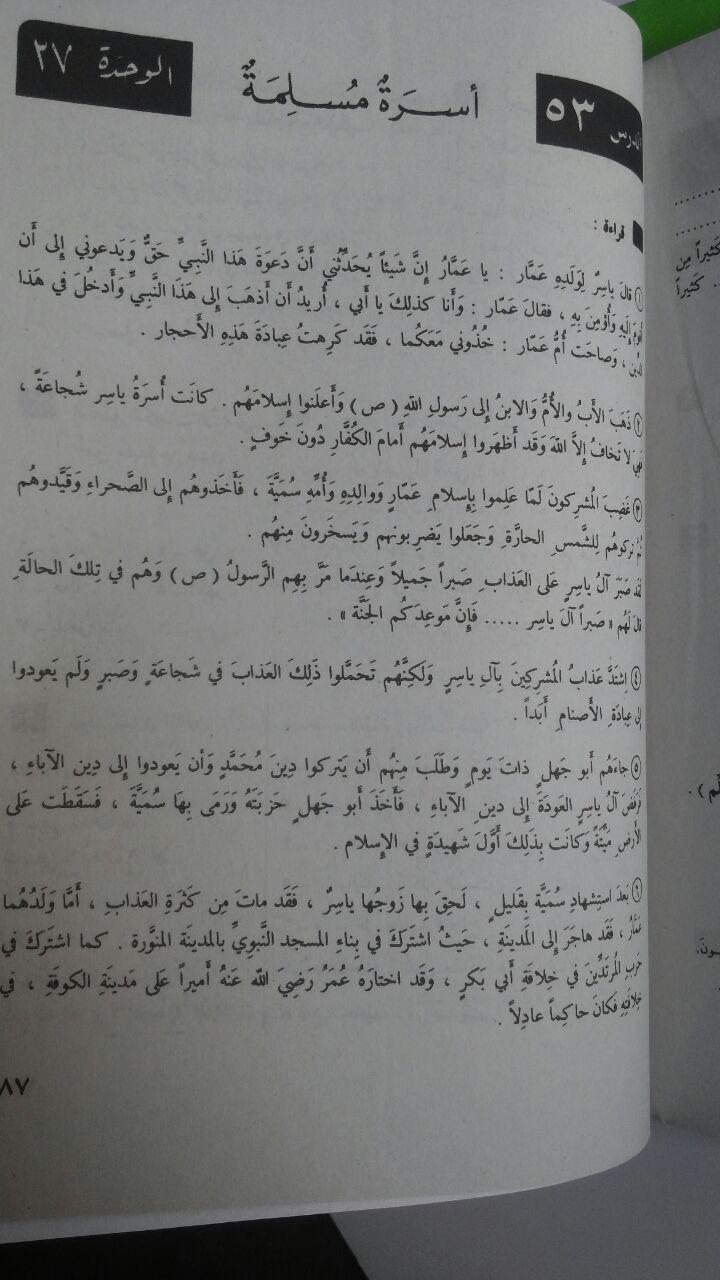 الدرس ٥٣
أسرَةٌ مُسلِمَةٌ
الوحدة ٢٧
قراءة :
① قالَ ياسِرٌ لِوَلَدِهِ عَمَّار : يا عَمَّارُ إنَّ شَيئاً يُحَدِّثُني أَنَّ دَعوَةَ هَذا النَّبيِّ حَقٌّ وَيَدعوني إلى أَن
إلَيهِ وَأُؤمِنَ بِهِ ، فقالَ عَمّار : وَأَنا كذلِكَ يا أَبي ، أُريدُ أن أذهَبَ إلى هَذَا النَّبيِّ وَأَدخُلَ في هَذا
الدِّين ، وَصاحَت أُمُّ عَمّار : خُذُوني مَعَكُما ، فَقَد كَرِهتُ عِبادَةَ هَذِهِ الأَحجار .
② ذَهَبَ الأَبُ والأُمُّ وَالابنُ إلى رَسولِ اللهِ ( ص ) وَأَعلَنوا إسلامَهُم . كانَت أُسرَةُ ياسِر شُجاعَةً ،
فَهِيَ لا تَخافُ إلاَّ اللهَ وَقَد أظهَروا إسلامَهُم أَمامَ الكُفَّارِ دُونَ خَوفٍ .
③ غَضِبَ المُشرِكونَ لَمّا عَلِموا بِإسلامِ عَمّارٍ وَوالِدِهِ وَأُمِّهِ سُمَيَّةَ ، فَأَخَذوهُم إلى الصَّحراءِ وَقَيَّدوهُم
ثُمَّ تركوهُم لِلشَّمسِ الحارَّةِ وَجَعَلوا يَضرِبونهم وَيَسخَرونَ مِنهُم .
لقد صَبَرَ آلُ ياسِرٍ عَلى العَذابِ صَبراً جَميلاً وَعِندَما مَرَّ بِهِم الرَّسولُ ( ص ) وَهُم في تِلكَ الحالَةِ
قالَ لَهُم « صَبراً آلَ ياسِر ..... فَإِنَّ مَوعِدَكُم الجَنَّةُ » .
④ اِشتَدَّ عَذابُ المُشرِكينَ بِآلِ ياسِرٍ وَلَكِنَّهُم تَحَمَّلوا ذَلِكَ العَذابَ في شَجاعَةٍ وَصَبرٍ وَلَم يَعودوا
إلى عِبادَةِ الأَصنامِ أَبَداً .
⑤ جاءَهُم أَبو جَهلٍ ذاتَ يَومٍ وَطَلَبَ مِنهُم أَن يَتركوا دِينَ مُحَمَّدٍ وَأن يَعودوا إلى دِينِ الآباءِ ،
فَرَفَضَ آلُ ياسِرٍ العَودَةَ إلى دينِ الآباءِ ، فَأَخَذَ أَبو جَهلٍ حَربَتَهُ وَرَمَى بِها سُمَيَّةَ ، فَسَقَطَت عَلى
الأَرضِ مَيِّتَةً وَكانَت بِذَلِكَ أَوَّلَ شَهيدَةٍ في الإسلامِ .
⑥ بَعدَ استِشهادِ سُمَيَّة بِقَليلٍ ، لَحِقَ بِها زَوجُها ياسِرٌ ، فَقَد ماتَ مِن كَثرَةِ العَذابِ ، أَمَّا وَلَدُهُما
عَمَّارٌ ، فَقَد هاجَرَ إلى المَدينَةِ ، حَيثُ اشتَرَكَ في بِناءِ المسجد النَّبويِّ بالمدينَة المنَوَّرة . كما اشتَركَ في
حَربِ المُرتَدِّينَ في خِلافَةِ أَبي بَكرٍ ، وَقَد اختارَهُ عُمَرُ رَضِيَ اللهُ عَنهُ أَميراً عَلى مَدينَةِ الكوفَةِ ، في
خِلافَتِهِ فَكانَ حاكِماً عادِلاً .
٨٧
كَثيراً مِن
كَثيراً